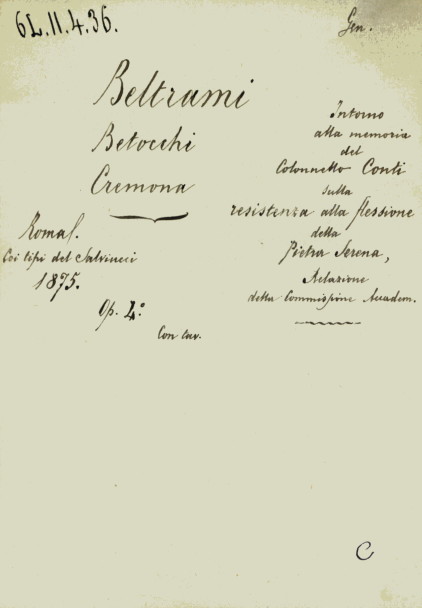 6L.11.4.36.
Gen.
Beltrami
Betocchi
Cremona
Roma
Coi tipi del Salviucci
1875.
Op. 4º
Con tav.
Intorno
alla memoria
del
Colonnello Conti
sulla
resistenza alla flessione
della
Pietra Serena,
Relazione
della Commissione Accadem.
C